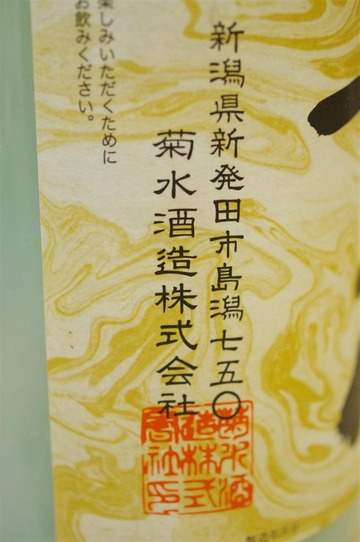 新潟県新発田市島潟七五〇
菊水酒造株式会社
菊水酒
造株式
会社印
楽しみいただくために
お飲みください。